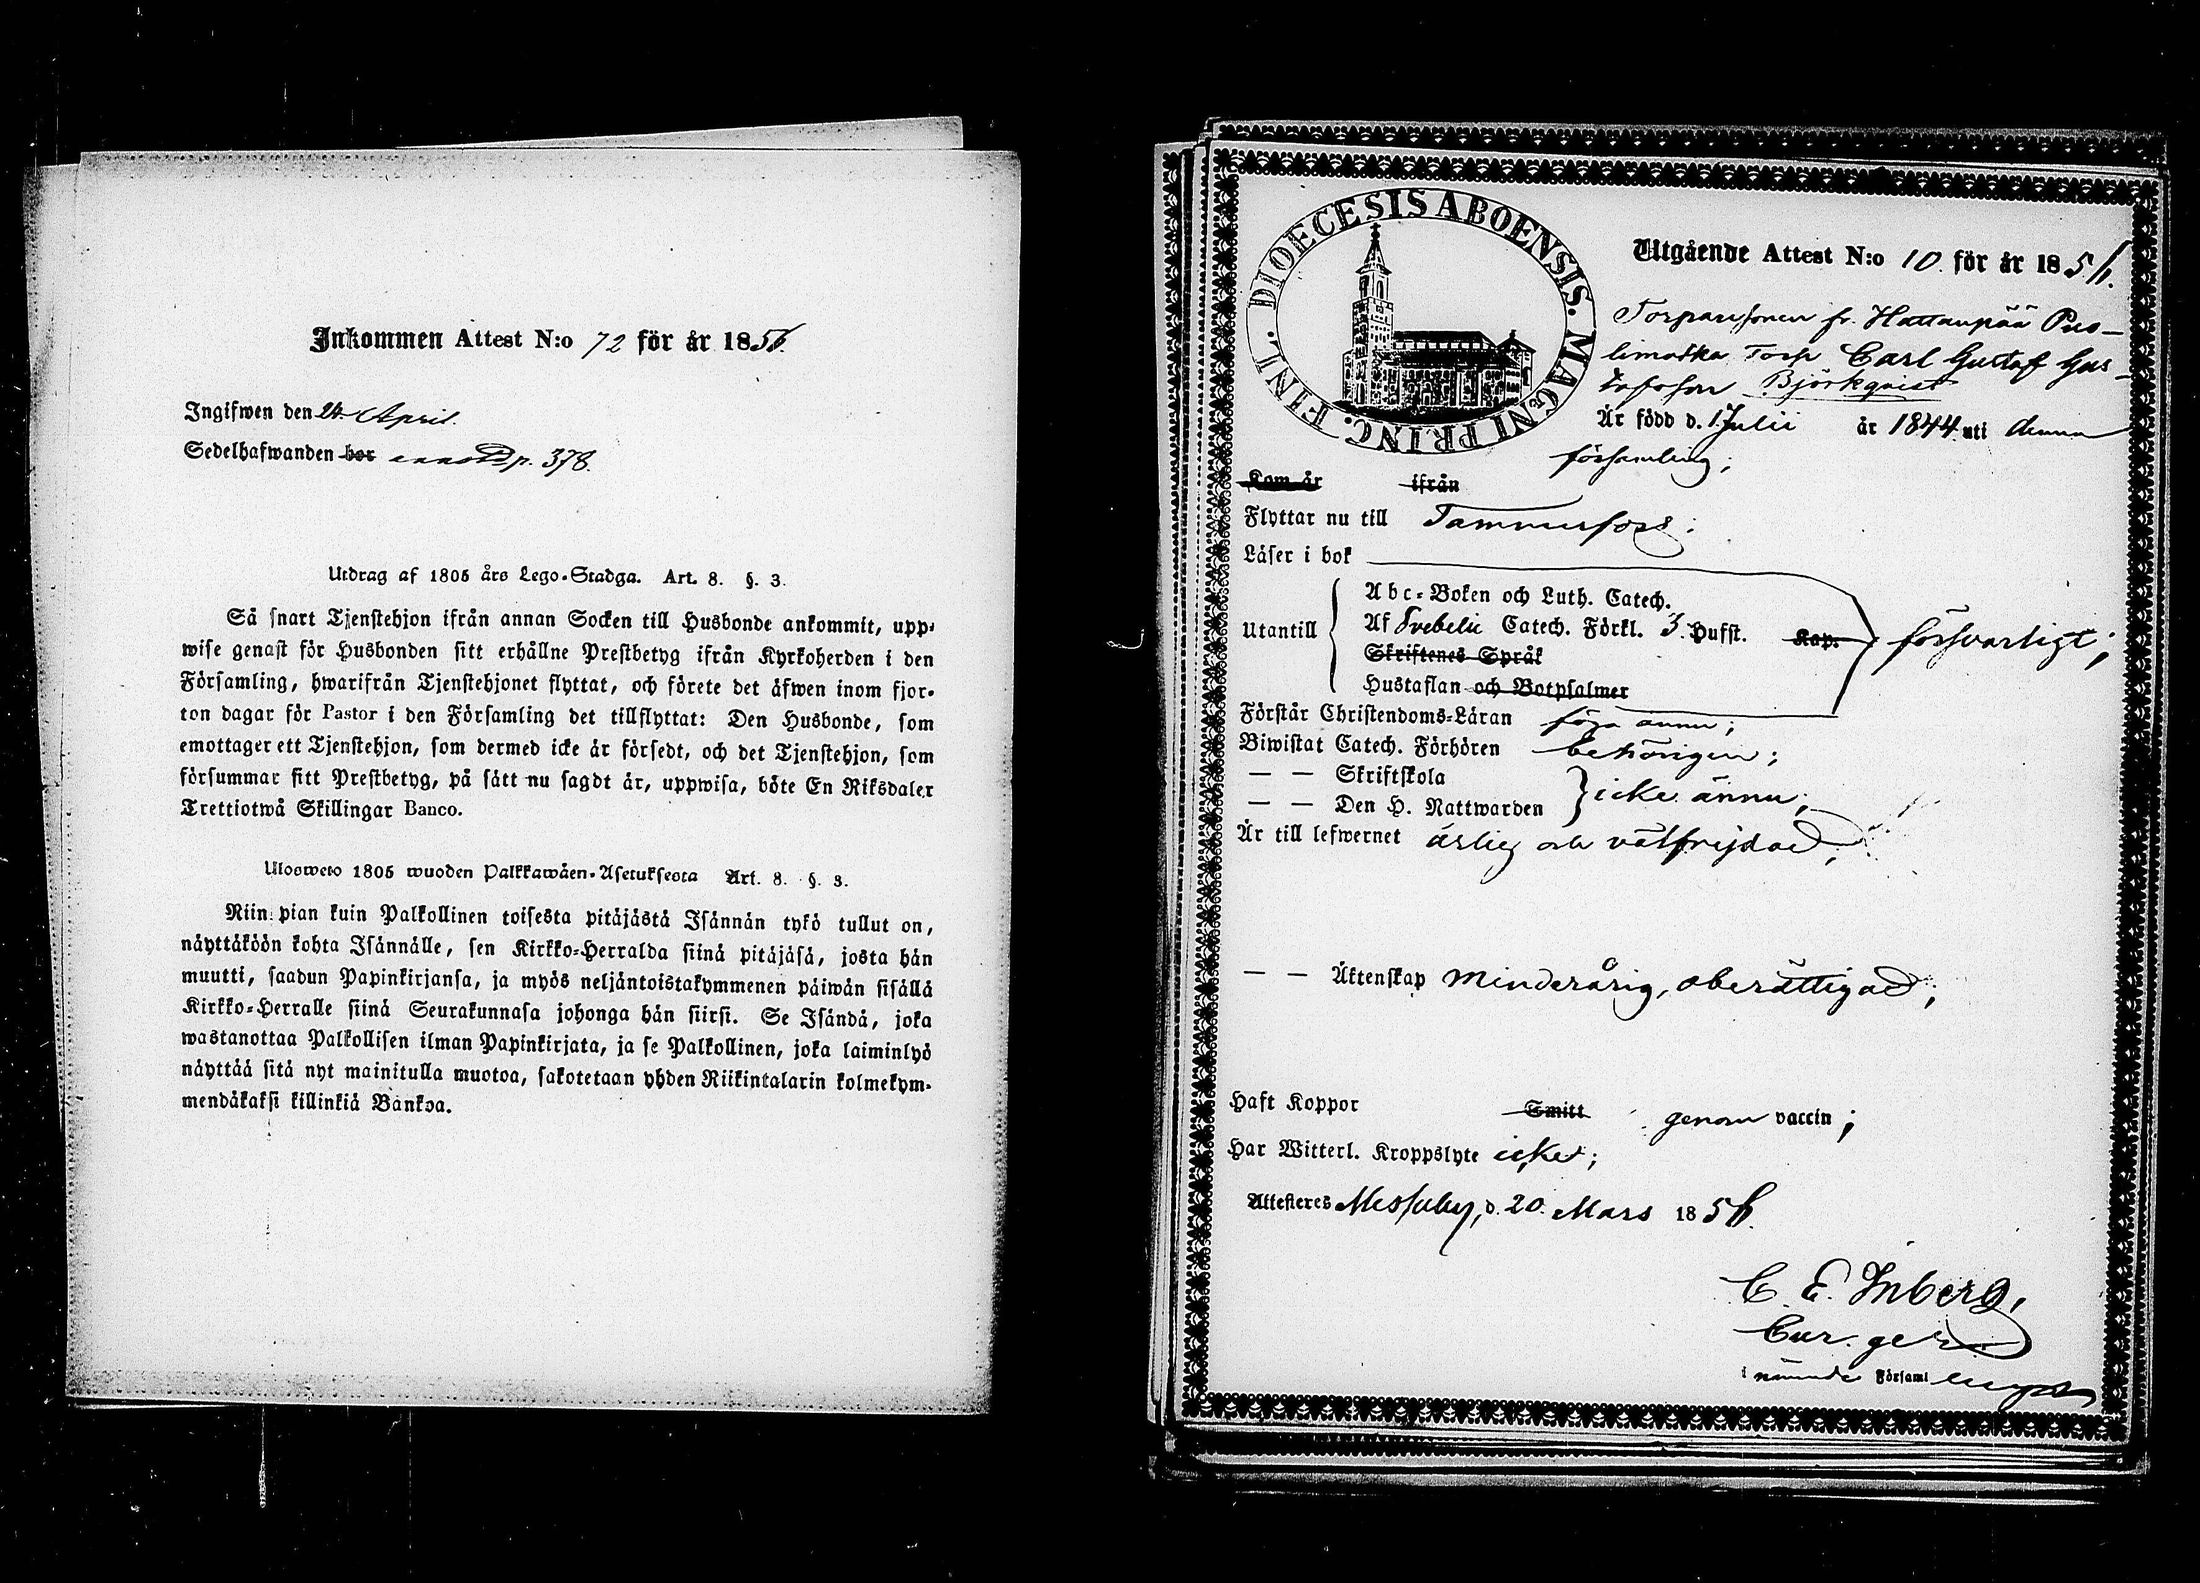 Inkommen Attest N:o 72 för år 1856.
Ingifwen den 24. April.
Sedelhafwanden bor annotd p. 378.
Utdrag af 1805 års Lego-Stadga. Art. 8. §. 3.
Så snart Tjenstehjon ifrån annan Socken till Husbonde ankommit, upp-
wise genast för Husbonden sitt erhållne Prestbetyg ifrån Kyrkoherden i den
Församling, hwarifrån Tjenstehjonet flyttat, och förete det äfwen inom fjor-
ton dagar för Pastor i den Församling det tillflyttat: Den Husbonde, som
emottager ett Tjenstehjon, som dermed icke är försedt, och det Tjenstehjon, som
försummar sitt Prestbetyg, på sätt nu sagdt är, uppwisa, böte En Riksdaler
Trettiotwå Skillingar Banco.
Ulosweto 1805 wuoden Palkkawäen-Asetuksesta Art. 8. §. 3.
Niin pian kuin Palkollinen toisesta pitäjästä Isännän tykö tullut on,
näyttäköön kohta Isännälle, sen Kirkko-Herralda siinä pitäjäsä, josta hän
muutti, saadun Papinkirjansa, ja myös neljäntoistakymmenen päiwän sisällä
Kirkko-Herralle siinä Seurakunnasa johonga hän siirsi. Se Isändä, joka
wastanottaa Palkollisen ilman Papinkirjata, ja se Palkollinen, joka laiminlyö
näyttää sitä nyt mainitulla muotoa, sakotetaan yhden Riikintalarin kolmekym-
mendäkaksi killinkiä Bankoa.
DIOECESIS ABOENSIS. MAGNI PRINC. FINL.
Utgående Attest N:o 10. för år 1856.
Torparesonen fr. Hattanpää Puo-
limatka Torp Carl Gustaf Gus-
tafsson Björkqvist
Är född d. 1 Julii år 1844 uti denna
församling;
Kom år ifrån
Flyttar nu till Tammerfors;
Läser i bok
Abc-Boken och Luth. Catech.
Utantill Af Svebelii Catech. Förkl. 3. Hufst. Kap. försvarligt;
Skriftenes Språk
Hustaflan och Botpsalmer
Förstår Christendoms-Läran föga ännu;
Biwistat Catech. Förhören behörigen;
— — Skriftskola
— — Den H. Nattwarden icke ännu;
Är till lefwernet ärlig och välfrejdad;
— — Äktenskap minderårig, oberättigad;
Haft Koppor Smitt genom vaccin;
Har Witterl. Kroppslyte icke;
Attesteres Messuby, d. 20. Mars 1856.
C. E. Inberg,
Cur. ger.
i nämnde Församlingar